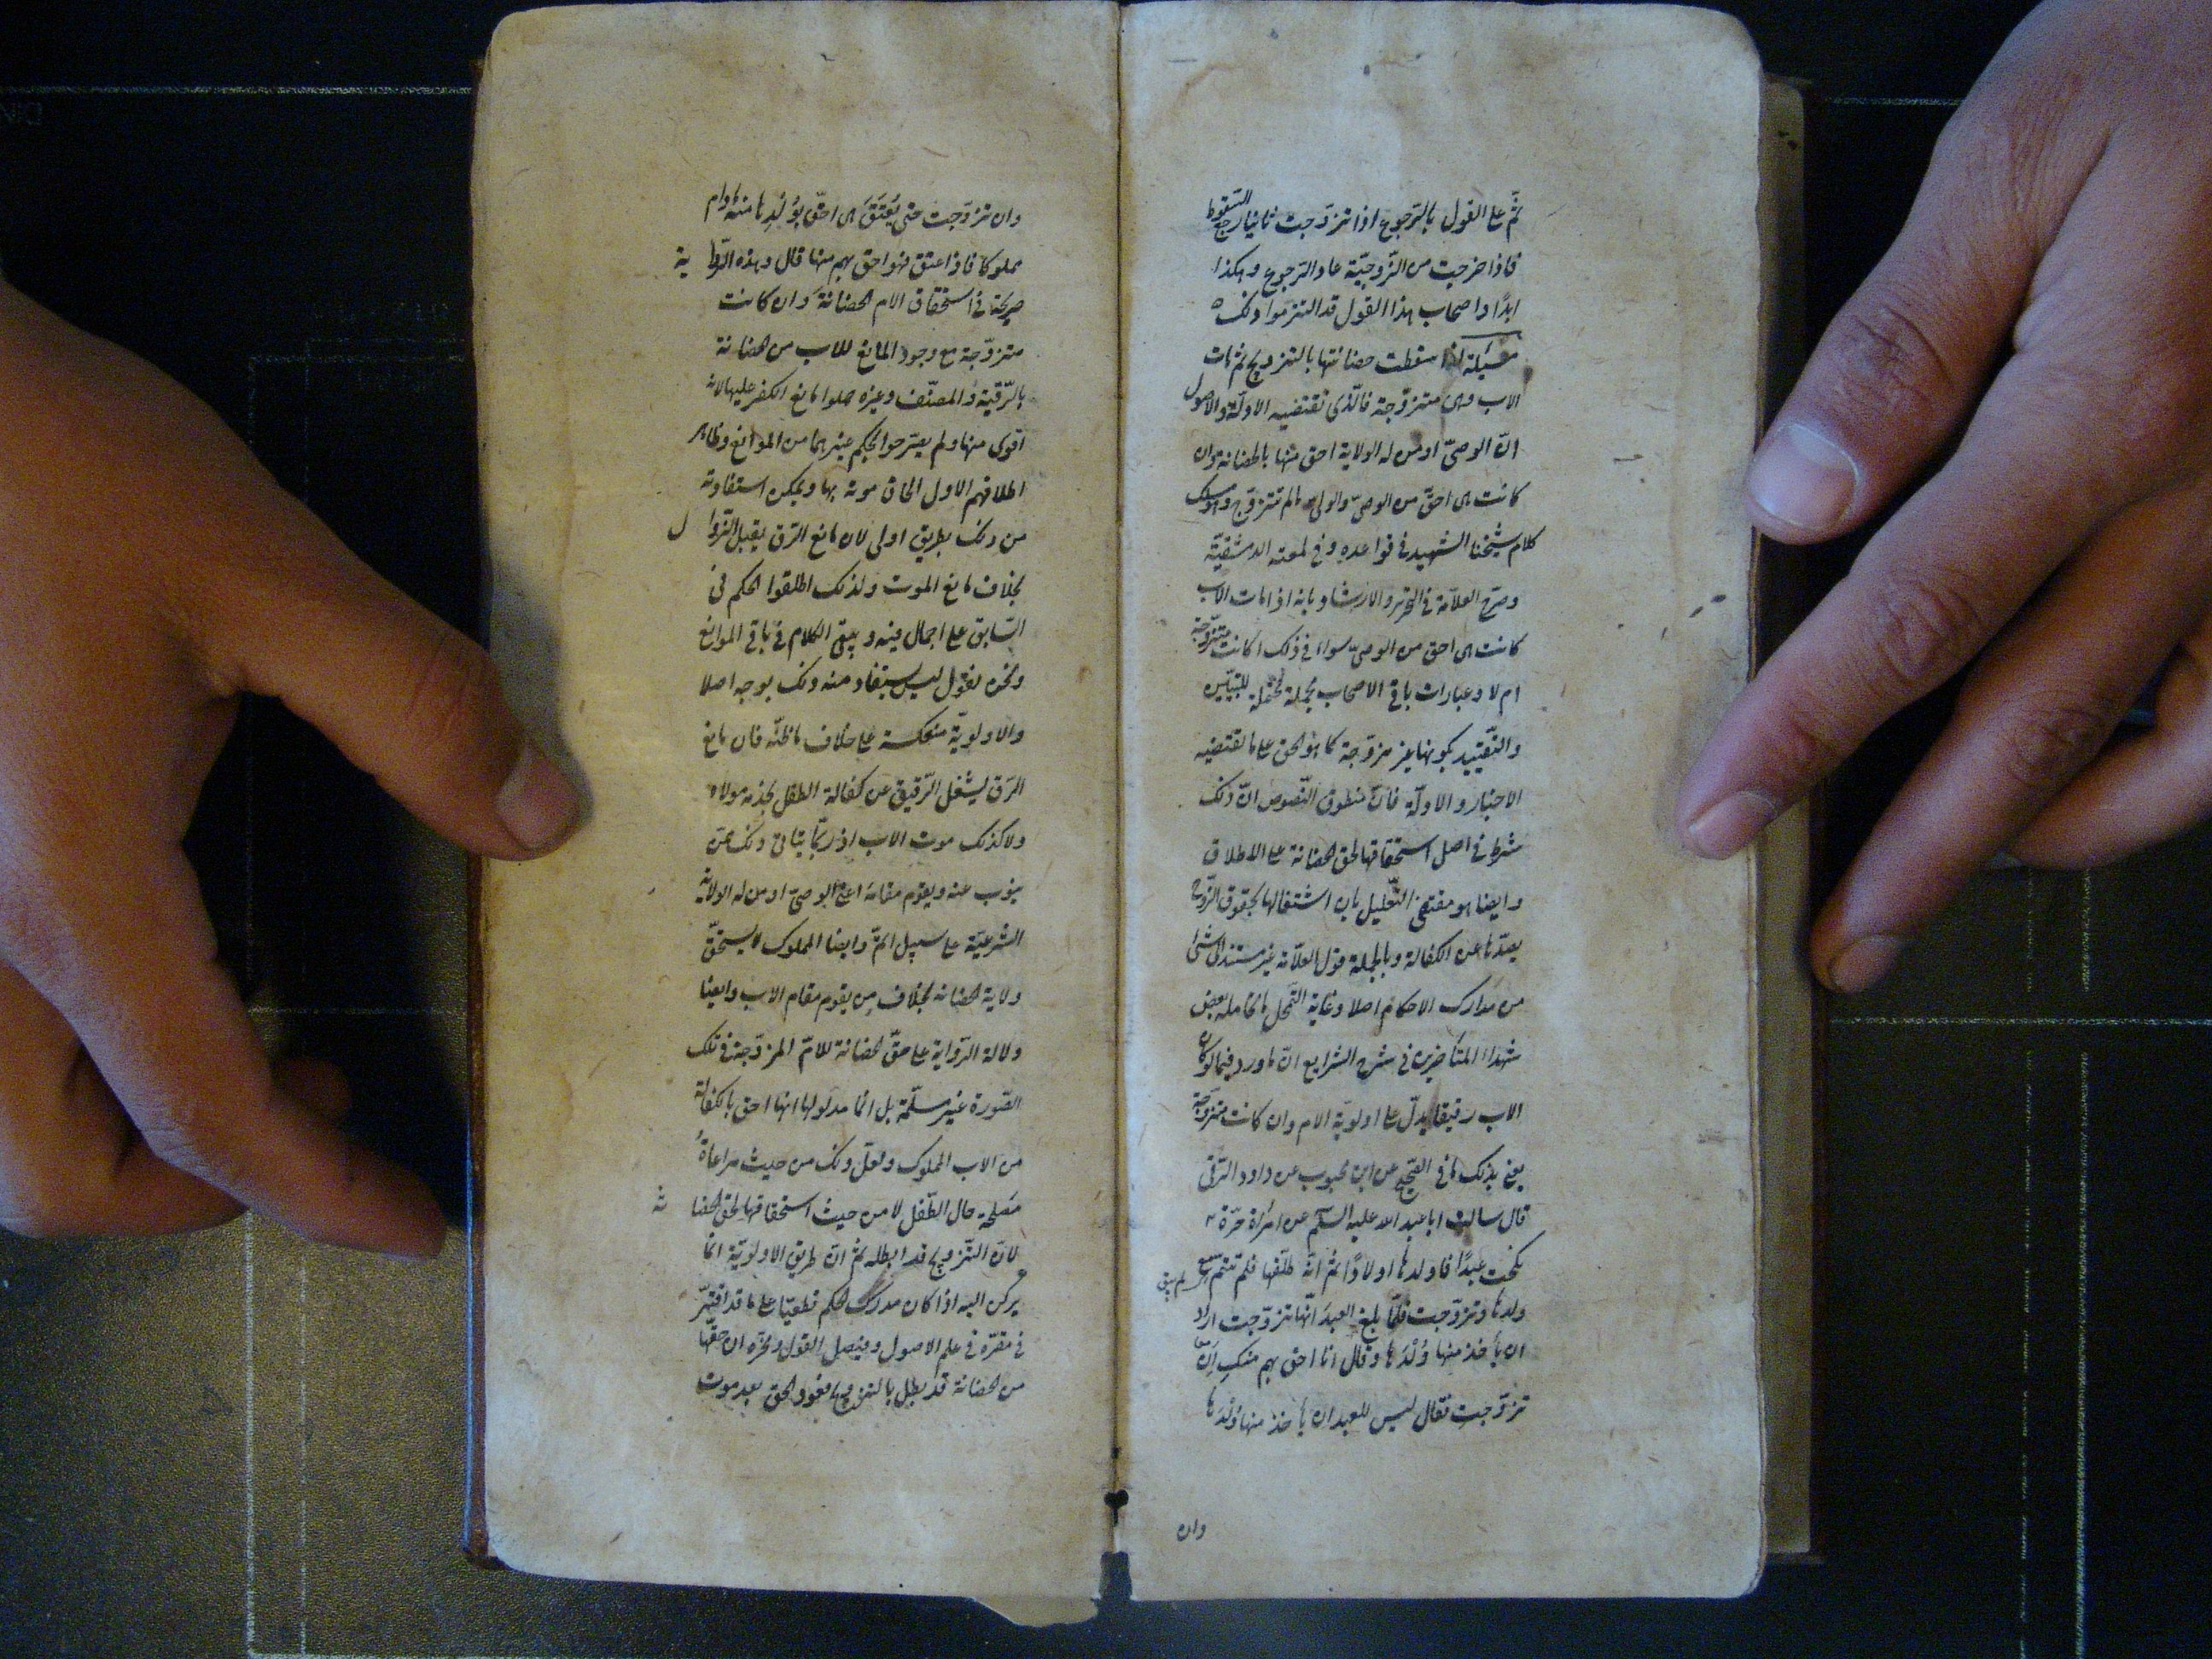 ثمّ على القول بالرجوع اذا تزوّجت ثانيا رجع السقوط
فاذا خرجت من الزّوجيّة عاد الرجوع وهكذا
ابدًا واصحاب هذا القول قد التزموا ذلك
مسئلة اذا سقطت حضانتها بالتزويج ثم مات
الاب وهى متزوّجة فالّذى تقتضيه الادلّة والاصول
انّ الوصىّ او من له الولاية احق منها بالحضانة وان
كانت هى احقّ من الوصىّ والولى ما لم تتزوّج وهو
كلام شيخنا الشهيد فى قواعده وفى لمعته الدمشقيّة
وصرّح العلاّمة فى التحرير والارشاد بانه اذا مات الاب
كانت هى احق من الوصىّ سواء فى ذلك اكانت متزوّجة
ام لا وعبارات باقى الاصحاب مجملة محتملة
والتّقييد بكونها غير مزوّجة كما هو الحق على ما تقتضيه
الاخبار والادلّة فانّ منطوق النّصوص انّ ذلك
شرط فى اصل استحقاقها لحق الحضانة على الاطلاق
وايضا هو مقتضى التّعليل بان اشتغالها بحقوق الزّوج
يصدّها عن الكفالة وبالجملة فقول العلاّمة غير مستند الى شئ
من مدارك الاحكام اصلا وغاية التمحّل ما تمحله بعض
شهداء المتأخرين فى شرح الشرايع انّ ما ورد فيما لو كان
الاب رقيقا يدلّ على اولويّة الام وان كانت متزوّجة
يعنى بذلك ما فى الصّحيح عن ابن محبوب عن داود الرّقى
قال سالت ابا عبد الله عليه السّلم عن امرأة حرّة
نكحت عبدًا فاولدها اولادًا ثمّ انّه طلّقها فلم تقم مع
ولدها وتزوّجت فلمّا بلغ العبدَ انّها تزوّجت اراد
ان يأخذ منها وُلْدَها وقال انا احق بهم منكِ ان
تزوّجتِ فقال ليس للعبد ان ياخذ منها وُلْدَها
وان
وان تزوّجت حتى يُعْتَقَ هى احقّ بوُلْدِها منه مادام
مملوكا فاذا اعتق فهو احق بهم منها قال وهذه الرّواية
صريحة فى استحقاق الام الحضانةَ وان كانت
متزوّجة مع وجود المانع للاب من الحضانة
بالرّقيّة والمصنّف وغيره حملوا مانع الكفر عليها لانه
اقوى منها ولم يصرّحوا بحكم غيرهما من الموانع وظاهر
اطلاقهم الاول الحاق موته بها ويمكن استفادته
من ذلك بطريق اولى لان مانع الرّق يقبل الزّوال
بخلاف مانع الموت ولذلك اطلقوا الحكم فى
السّابق على اجمال فيه ويبقى الكلام فى باقى الموانع
ونحن نقول ليس يستفاد منه ذلك بوجه اصلا
والاولويّة منعكسة على خلاف ما ظنّه فان مانع
الرّق ليشغل الرّقيق عن كفالة الطفل بخدمة مولاه
ولا كذلك موت الاب اذ ربّما يتاتى ذلك عمّن
ينوب عنه ويقوم مقامه اعنى الوصىّ او من له الولاية
الشرعيّة على سبيل اتمّ وايضا المملوك لا يستحقّ
ولاية الحضانة بخلاف من يقوم مقام الاب وايضا
دلالة الرّواية على حقّ الحضانة للامّ المزوّجة فى تلك
الصّورة غير مسلّمة بل انما مدلولها انها احق بالكفالة
من الاب المملوك ولعلّ ذلك من حيث مراعاةُ
مصلحة حال الطّفل لا من حيث استحقاقها لحق الحضانة
لانّ التّزويج قد ابطله ثمّ انّ طريق الاولويّة انما
يركن اليه اذا كان مدرك الحكم قطعيّا على ما قد
فى مقرّه فى علم الاصول وفيصل القول ونحوه ان حقّها
من الحضانة قد بطل بالتزويج فعود الحق بعد موت